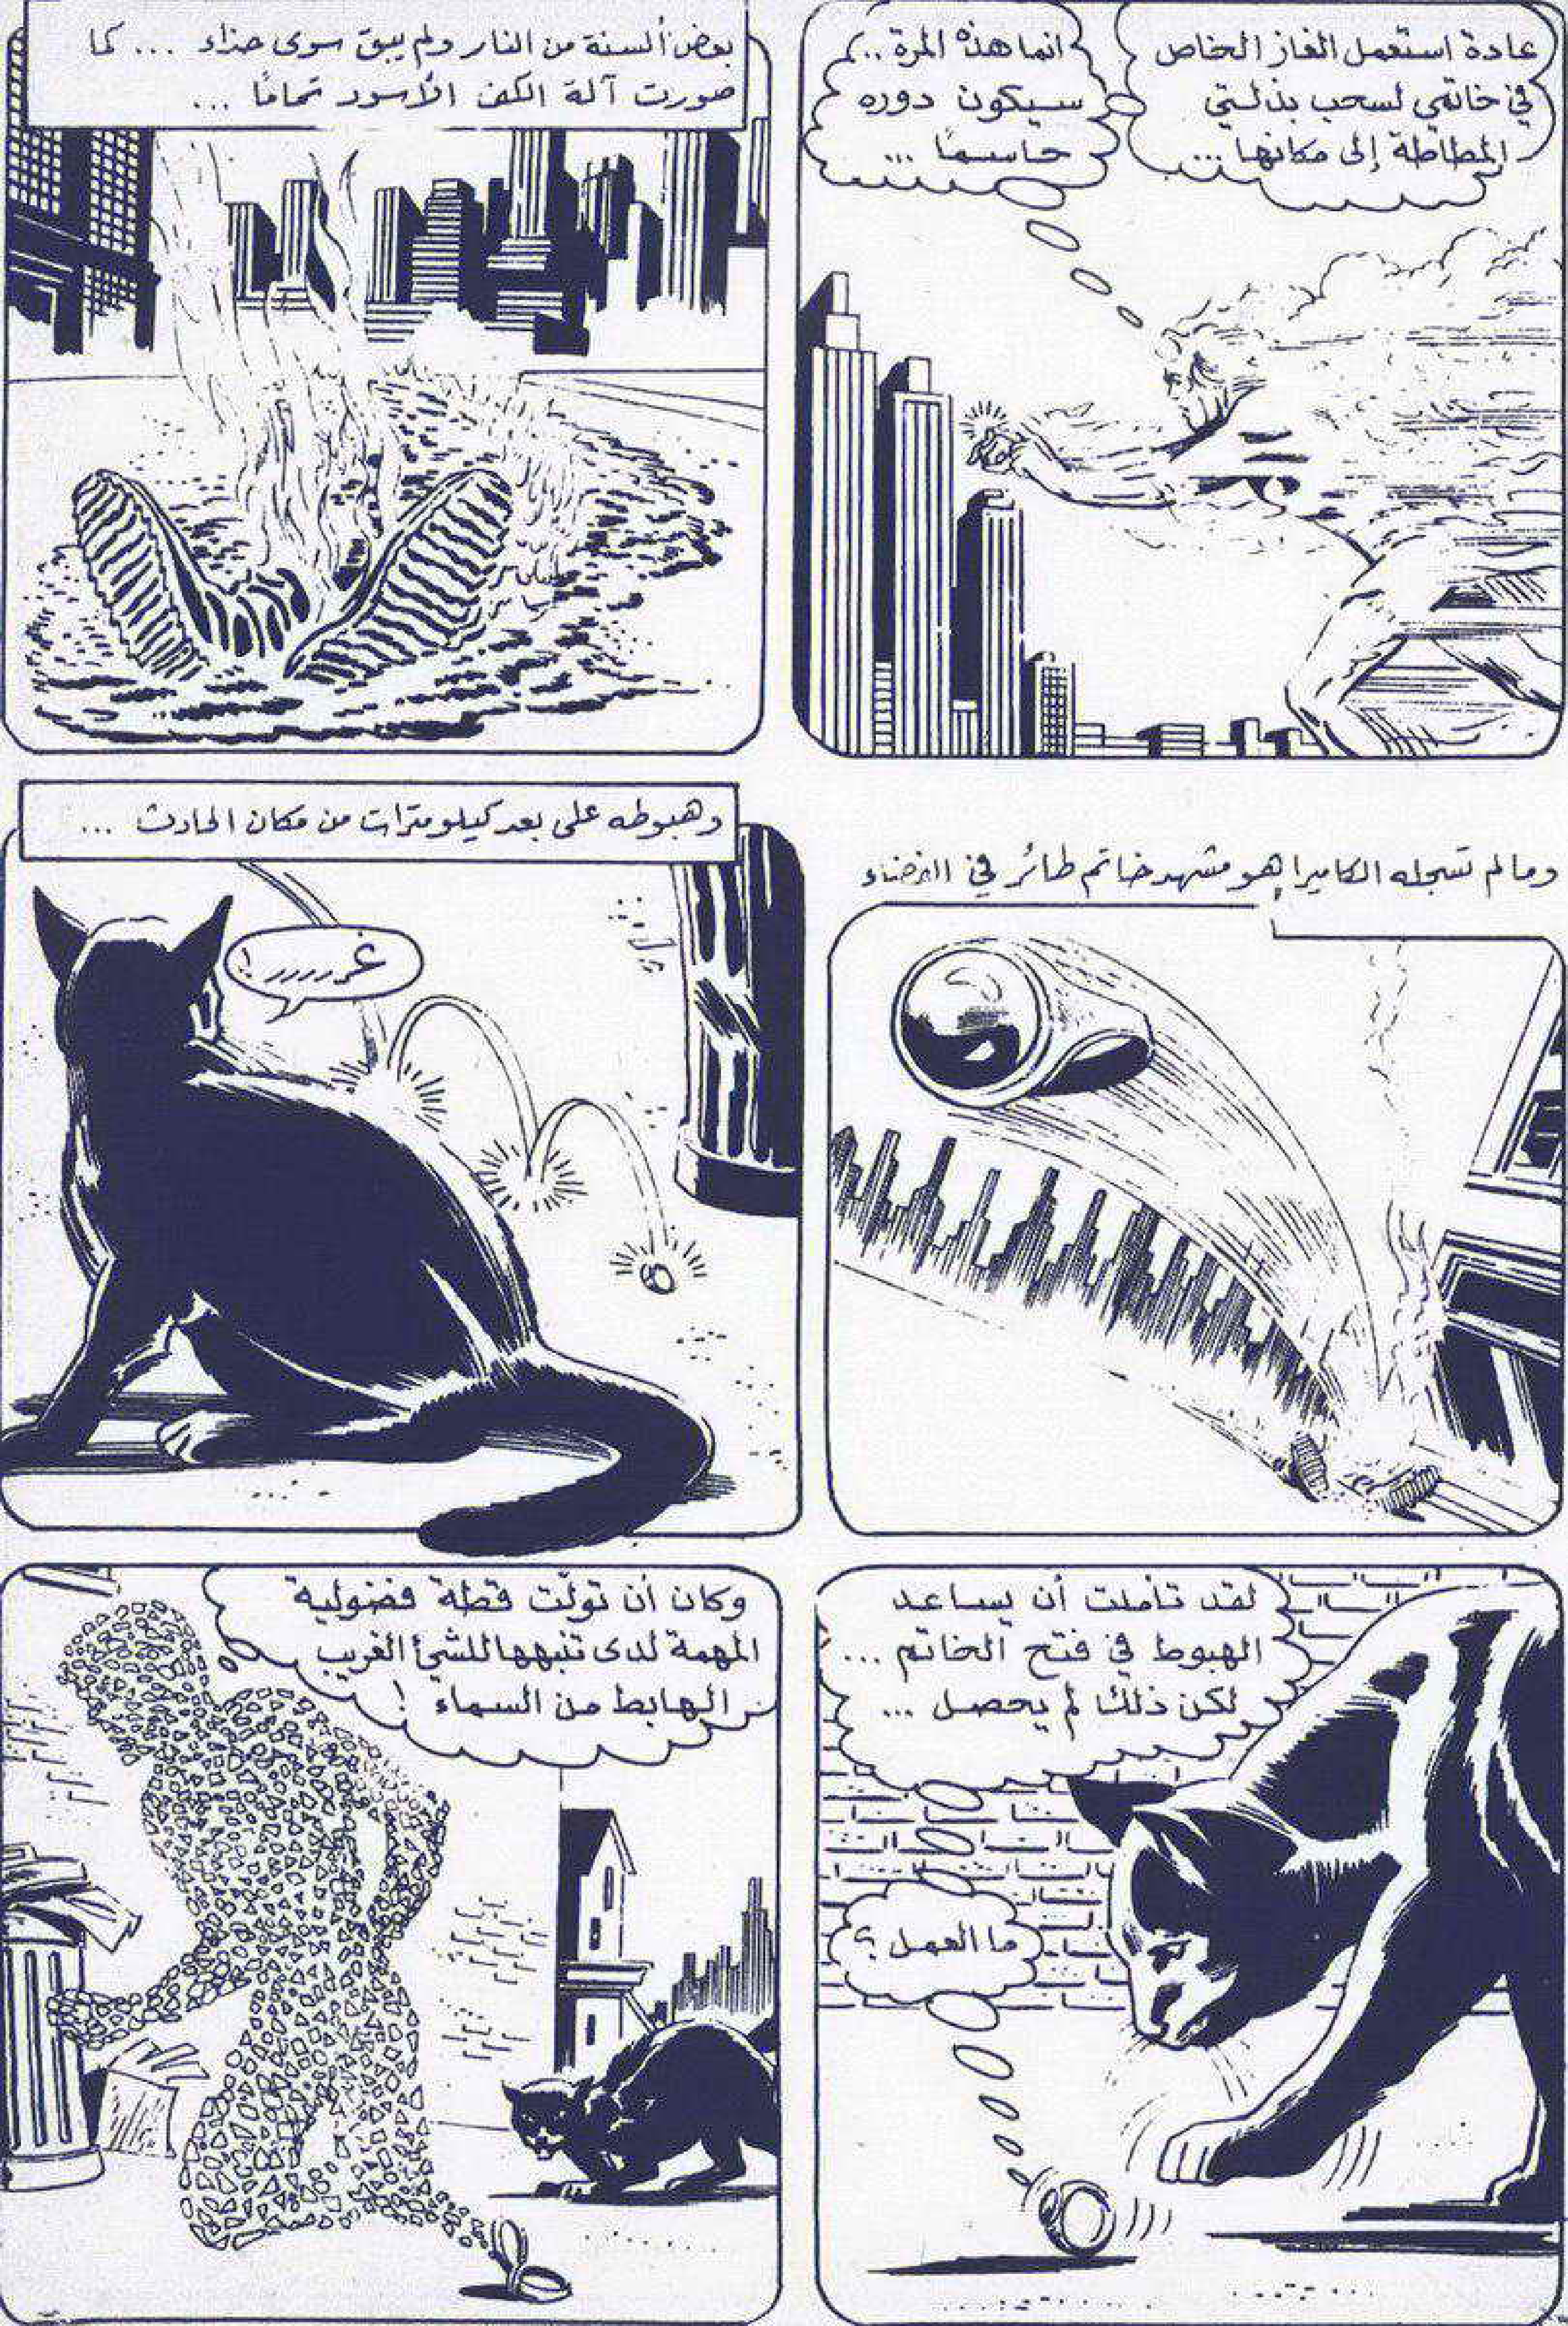 عادة استعمل الغاز الخاص
في خاتمي لسحب بذلتي
المطاطة إلى مكانها...
انما هذه المرة..
سيكون دوره
حاسماً ...
بعض ألسنة من النار ولم يبق سوى حذاء ... كما
صورت آلة الكف الأسود تماماً ...
وما لم تسجله الكاميرا هو مشهد خاتم طائر في الفضاء
وهبوطه على بعد كيلومترات من مكان الحادث ...
غررررر!
لقد تأملت أن يساعد
الهبوط في فتح الخاتم ...
لكن ذلك لم يحصل ...
ما العمل؟
وكان أن تولّت قطة فضولية
المهمة لدى تنبهها للشئ الغريب
الهابط من السماء!